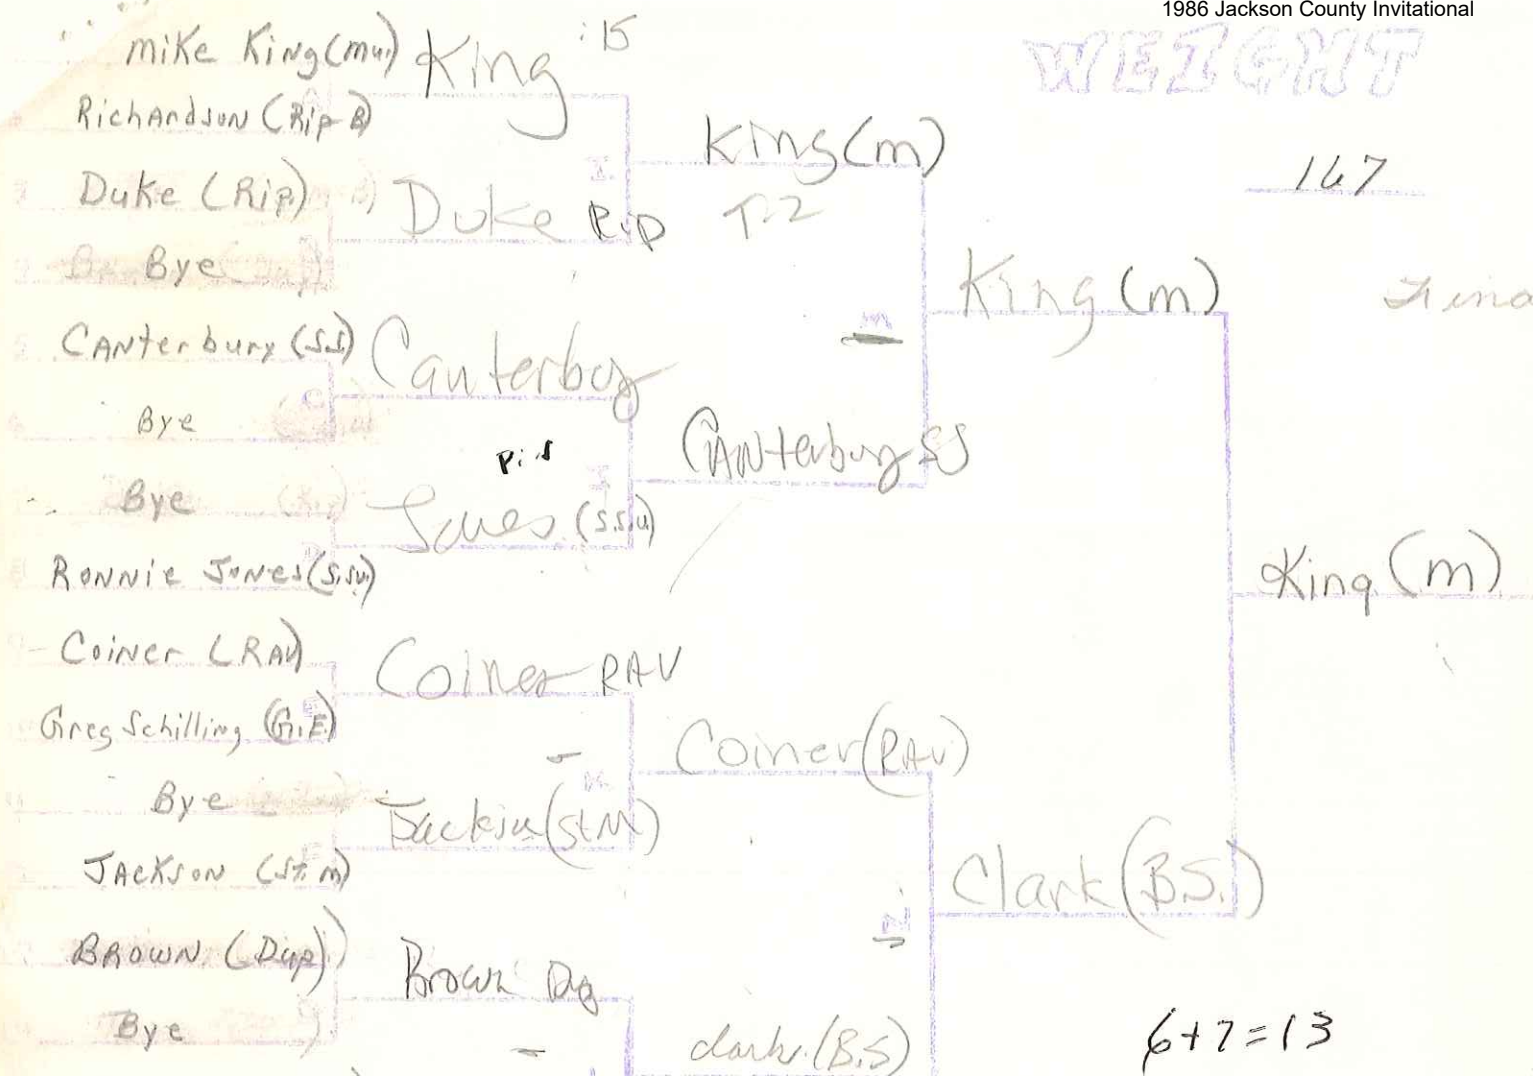 1986 Jackson County Invitational
WEIGHT
167
Mike King (Mu.)
Richardson (Rip B)
Duke (Rip)
Bye
Canterbury (SS)
Bye
Bye
Ronnie Jones (S.SU)
Coiner (RAV)
Greg Schilling (G.E.)
Bye
Jackson (St. M)
Brown (Dup)
Bye
King :15
Duke Rip
Canterboy
Pin
Jones (S.S.U)
Coiner RAV
Jackson (St M)
Brown Dg
King (m)
T-2
Canterbury SS
Coiner (RAV)
Clark (B.S)
King (m)
Clark (B.S.)
King (m)
6+7=13